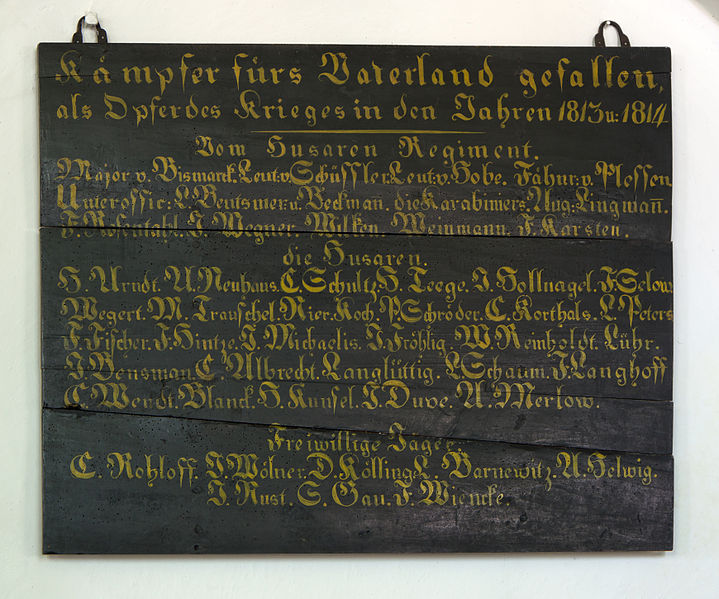 Kämpfer fürs Vaterland gefallen,
als Opfer des Krieges in den Jahren 1813 u: 1814
Vom Husaren Regiment.
Major v. Bismark. Leut: v. Schüssler. Leut: v. Hobe. Fähnr: v. Plessen
Unteroffic: L. Beutsmer u. Beckman. die Karabiniers. Aug: Lingwan̄.
F. Rosentahl. J. Wegner. Wilken. Weinmann. F. Karsten.
die Husaren.
H. Arndt. A. Neuhaus. C. Schultz. H. Teege. J. Hollnagel. F. Selow
Wegert. M. Trauschel. Rier. Koch. P. Schröder. C. Korthals. L. Peters
F. Fischer. F. Hintze. J. Michaelis. J. Fröhlig. W. Reinholdt. Lühr.
J. Bensman. C. Albrecht. Langlüttig. L. Schaum. J. Langhoff
C. Wendt. Blanck. H. Kunsel. J. Duve. A. Merlow.
Freiwillige Jager.
C. Rohloff. J. Wölner. D. Kölling. L. Barnewitz. A. Helwig.
J. Rust. S. Gau. F. Wiencke.